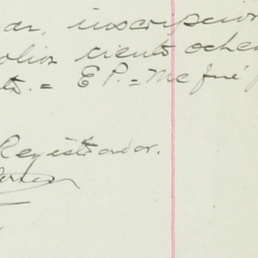 ar, inscripcion
olio ciento oche
to. = E P. = Me fué
Registrador.